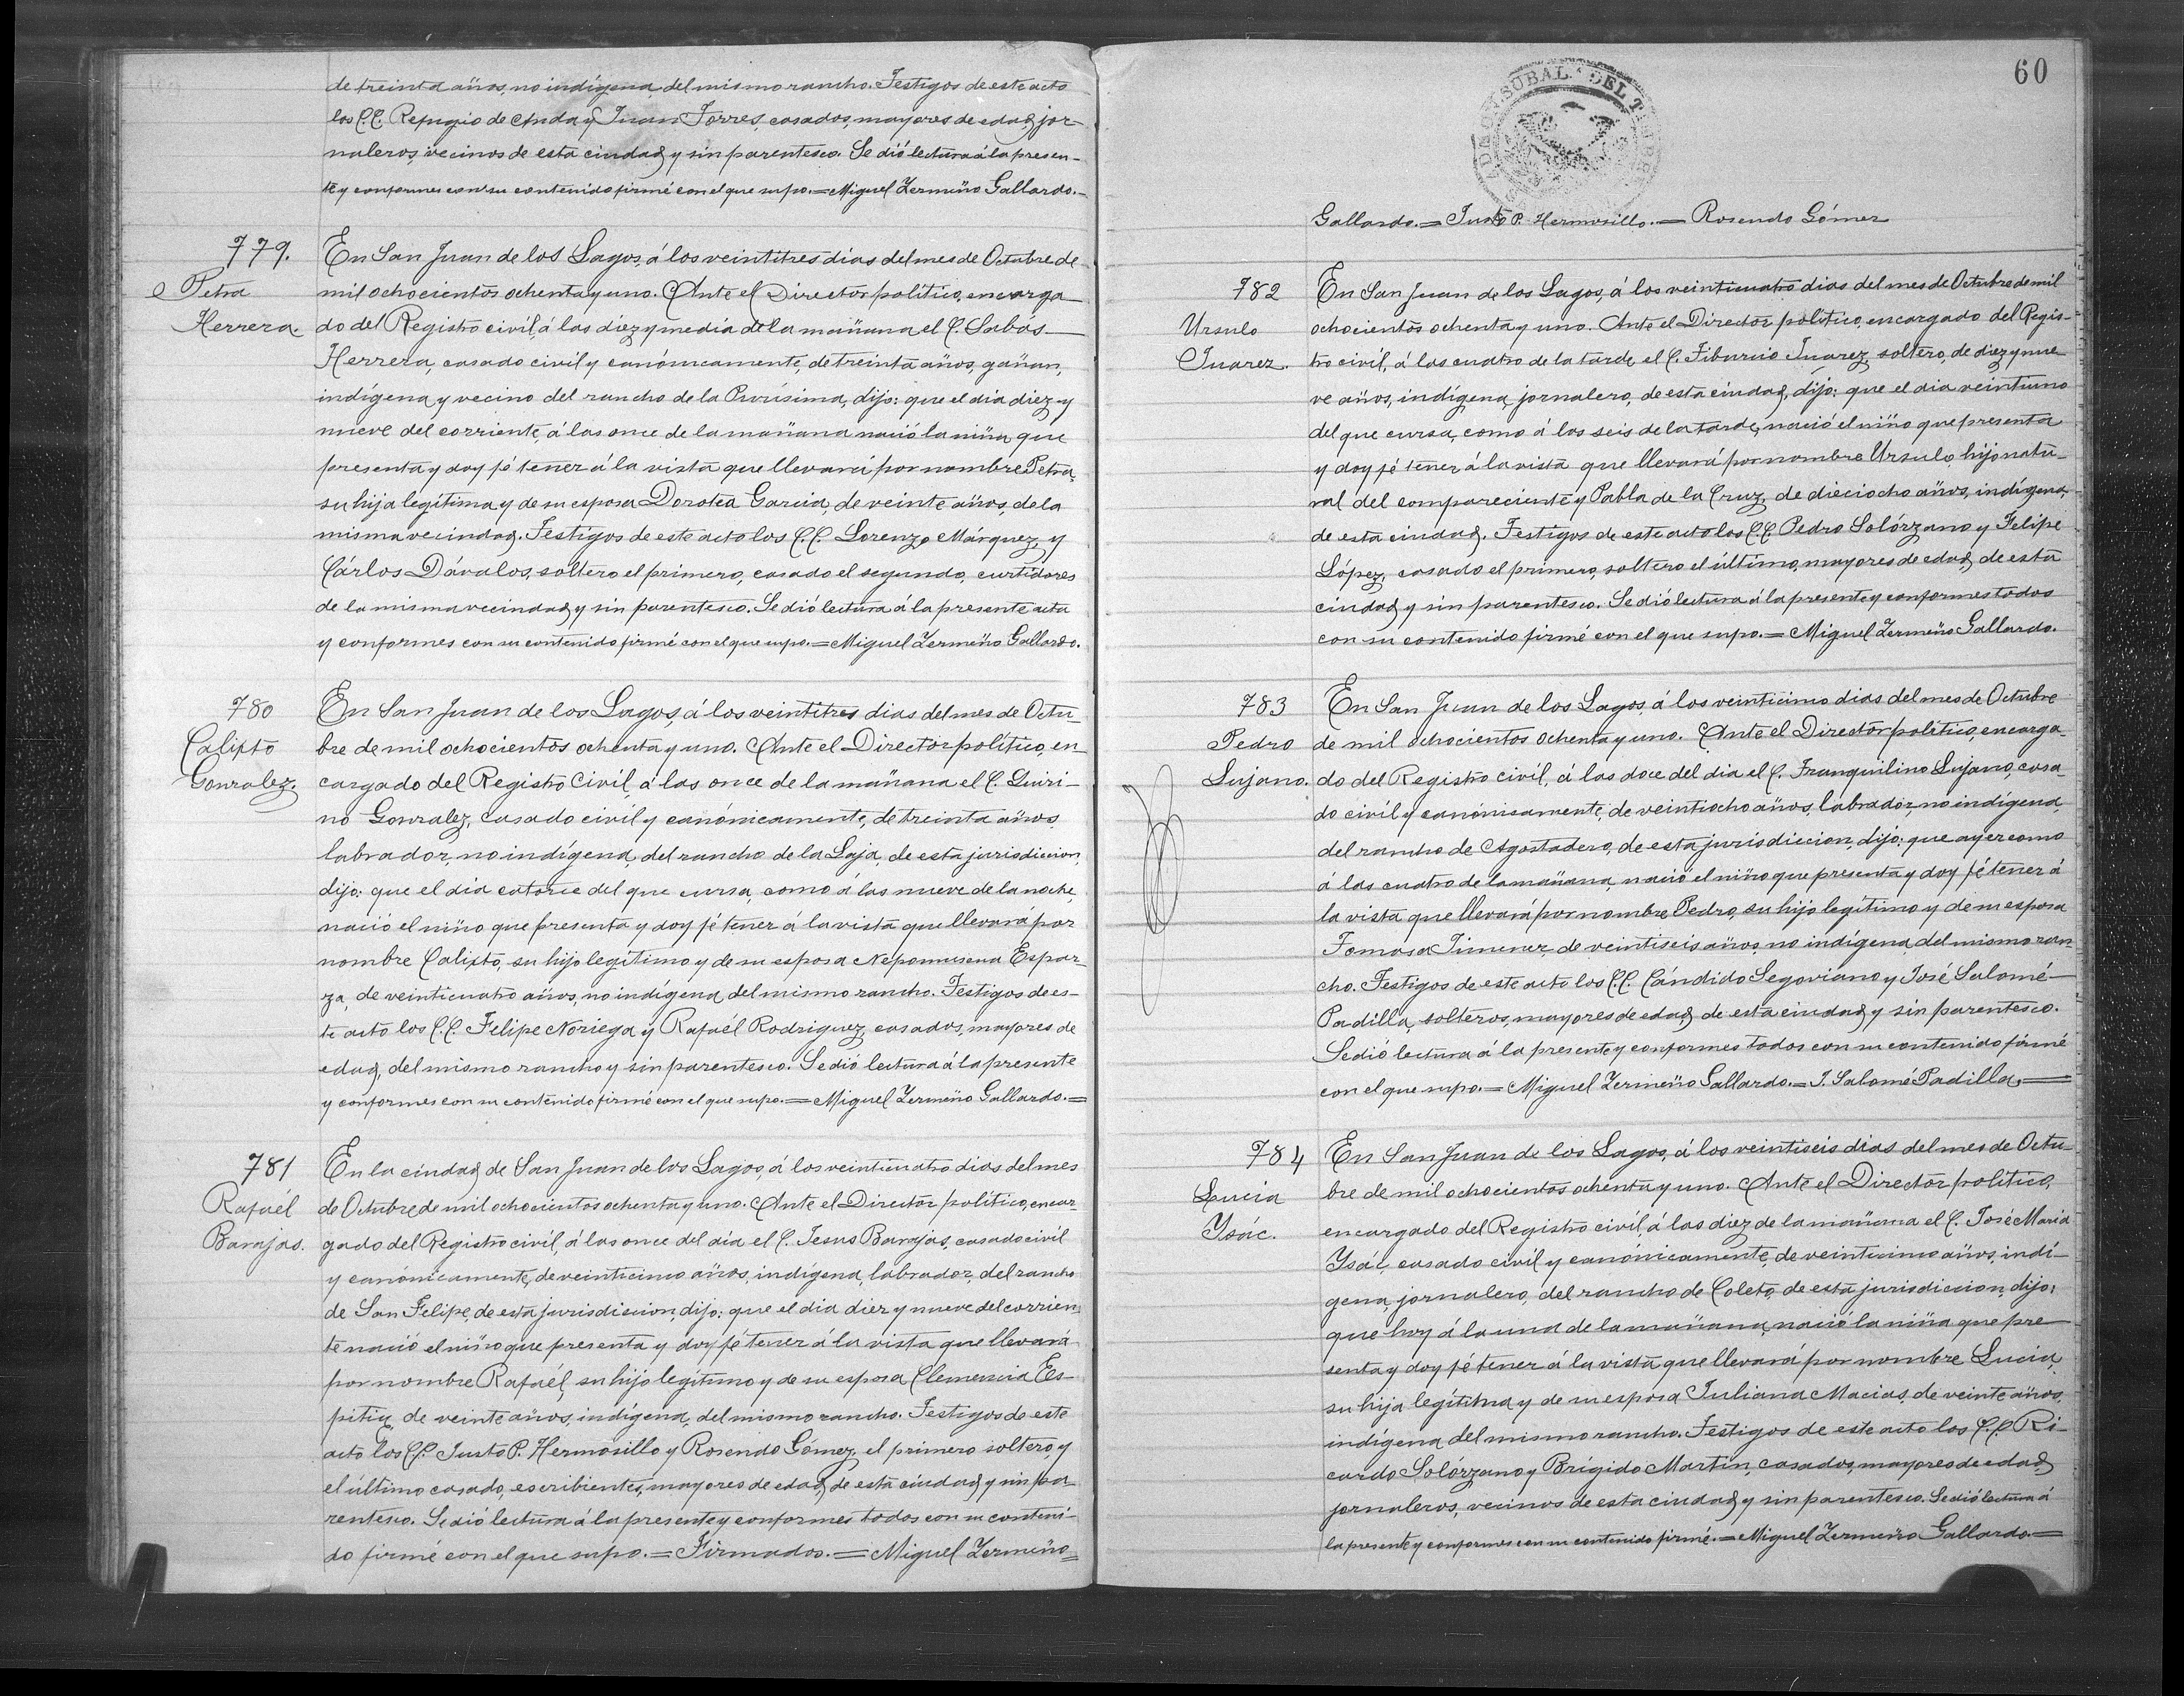 de treinta años, no indígena, del mismo rancho. Testigos de este acto
los C.C. Refugio de Anda y Juan Torres, casados, mayores de edad, jor-
naleros, vecinos de esta ciudad y sin parentesco. Se dió lectura á la presen-
te y conformes con su contenido firmé con el que supo.=Miguel Zermeño Gallardo.-
779.
Petra
Herrera.
En San Juan de los Lagos, á los veintitres dias del mes de Octubre de
mil ochocientos ochenta y uno. Ante el Director político, encarga
do del Registro civil, á las diez y media de la mañana el C. Sabás
Herrera, casado civil y canónicamente, de treinta años, gañan,
indígena y vecino del rancho de la Purísima, dijo: que el dia diez y
nueve del corriente, á las once de la mañana nació la niña que
presenta y doy fé tener á la vista que llevará por nombre Petra,
su hija legítima y de su esposa Dorotea Garcia, de veinte años, de la
misma vecindad. Testigos de este acto los C.C. Lorenzo Márquez, y
Cárlos Dávalos, soltero el primero, casado el segundo, curtidores
de la misma vecindad y sin parentesco. Se dió lectura á la presente acta
y conformes con su contenido firmé con el que supo.=Miguel Zermeño Gallardo.
780
Calixto
Gonzalez.
En San Juan de los Lagos, á los veintitres dias del mes de Octu-
bre de mil ochocientos ochenta y uno. Ante el Director político, en
cargado del Registro Civil, á las once de la mañana el C. Quiri-
no Gonzalez, casado civil y canónicamente, de treinta años
labrador, no indígena, del rancho de la Laja, de esta jurisdiccion,
dijo: que el dia catorce del que cursa, como á las nueve de la noche,
nació el niño que presenta y doy fé tener á la vista que llevará por
nombre Calixto, su hijo legítimo y de su esposa Nepomusena Espar-
za, de veinticuatro años, no indígena, del mismo rancho. Testigos de es-
te acto los C.C. Felipe Noriega y Rafaél Rodriguez, casados, mayores de
edad, del mismo rancho y sin parentesco. Se dió lectura á la presente
y conformes con su contenido firmé con el que supo.=Miguel Zermeño Gallardo.=
781
Rafaél
Barajas.
En la ciudad de San Juan de los Lagos, á los veinticuatro dias del mes
de Octubre de mil ochocientos ochenta y uno. Ante el Director político, encar-
gado del Registro civil, á las once del dia el C. Jesus Barajas, casado civil
y canónicamente, de veinticinco años, indígena, labrador, del rancho
de San Felipe, de esta jurisdiccion, dijo: que el dia diez y nueve del corrien
te nació el niño que presenta y doy fé tener á la vista que llevará
por nombre Rafaél, su hijo legítimo y de su esposa Clemencia Es-
pitia, de veinte años, indígena, del mismo rancho. Testigos de este
acto los C.C. Justo P. Hermosillo y Rosendo Gómez, el primero soltero, y
el último casado, escribientes, mayores de edad, de esta ciudad y sin pa-
rentesco. Se dió lectura á la presente y conformes todos con su conteni-
do firmé con el que supo.=Firmados.=Miguel Zermeño=
60
Gallardo.=Justo P. Hermosillo.=Rosendo Gómez
782
Ursulo
Juarez.
En San Juan de los Lagos, á los veinticuatro dias del mes de Octubre de mil
ochocientos ochenta y uno. Ante el Director político, encargado del Regis-
tro civil, á las cuatro de la tarde, el C. Tiburcio Juarez, soltero, de diez y nue
ve años, indígena, jornalero, de esta ciudad, dijo: que el dia veintiuno
del que cursa, como á las seis de la tarde, nació el niño que presenta
y doy fé tener á la vista que llevará por nombre Ursulo, hijo natu-
ral del compareciente y Pabla de la Cruz, de dieciocho años, indígena,
de esta ciudad. Testigos de este acto los C.C. Pedro Solórzano y Felipe
López, casado el primero, soltero el último, mayores de edad, de esta
ciudad y sin parentesco. Se dió lectura á la presente y conformes todos
con su contenido firmé con el que supo.=Miguel Zermeño Gallardo.
783
Pedro
Lujano.
En San Juan de los Lagos, á los veinticinco dias del mes de Octubre
de mil ochocientos ochenta y uno. Ante el Director político, encarga-
do del Registro civil, á las doce del dia el C. Tranquilino Lujano, casa-
do civil y canónicamente, de veintiocho años, labrador, no indígena,
del rancho de Agostadero, de esta jurisdiccion, dijo: que ayer como
á las cuatro de la mañana, nació el niño que presenta y doy fé tener á
la vista que llevará por nombre Pedro, su hijo legítimo y de su esposa
Tomasa Jimenez, de veintiseis años, no indígena, del mismo ran-
cho. Testigos de este acto los C.C. Cándido Segoviano y José Salomé
Padilla, solteros, mayores de edad, de esta ciudad y sin parentesco.
Se dió lectura á la presente y conformes todos con su contenido firmé
con el que supo.=Miguel Zermeño Gallardo.=J. Salomé Padilla.=
784
Lucia
Ysác.
En San Juan de los Lagos, á los veintiseis dias del mes de Octu-
bre de mil ochocientos ochenta y uno. Ante el Director político,
encargado del Registro civil, á las diez de la mañana el C. José Maria
Ysác, casado civil y canónicamente, de veinticinco años, indí-
gena, jornalero, del rancho de Coleto, de esta jurisdiccion, dijo:
que hoy á la una de la mañana, nació la niña que pre
senta y doy fé tener á la vista que llevará por nombre Lucia,
su hija legítima y de su esposa Juliana Macias, de veinte años,
indígena, del mismo rancho. Testigos de este acto los C.C. Ri-
cardo Solórzano y Brígido Martin, casados, mayores de edad,
jornaleros, vecinos de esta ciudad y sin parentesco. Se dió lectura á
la presente y conformes con su contenido firmé.=Miguel Zermeño Gallardo.=